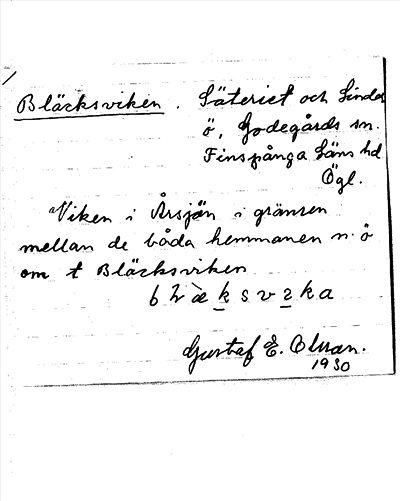 Bläcksviken. Säteriet och Linders
ö, Godegårds sn.
Finspånga läns hd
Ögl.
Viken i Årsjön i gränsen
mellan de båda hemmanen n. ö
om t Bläcksviken
Gustaf E.
1930